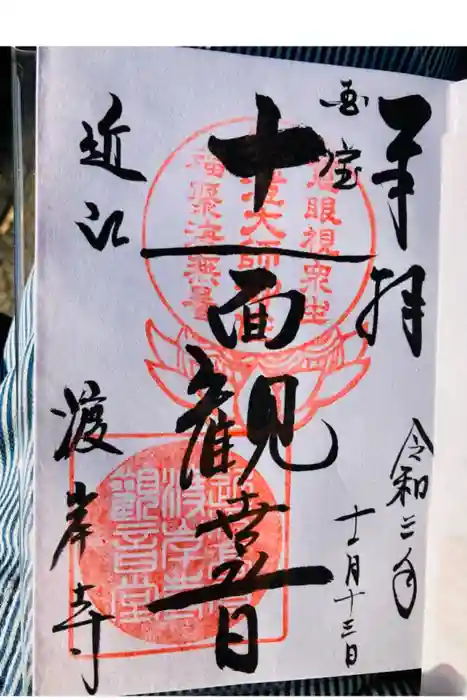 奉拝
令和三年
国宝
十一月十三日
十一面観世音
近江
渡岸寺
慈眼視衆生
福聚海無量
渡岸寺
観音堂